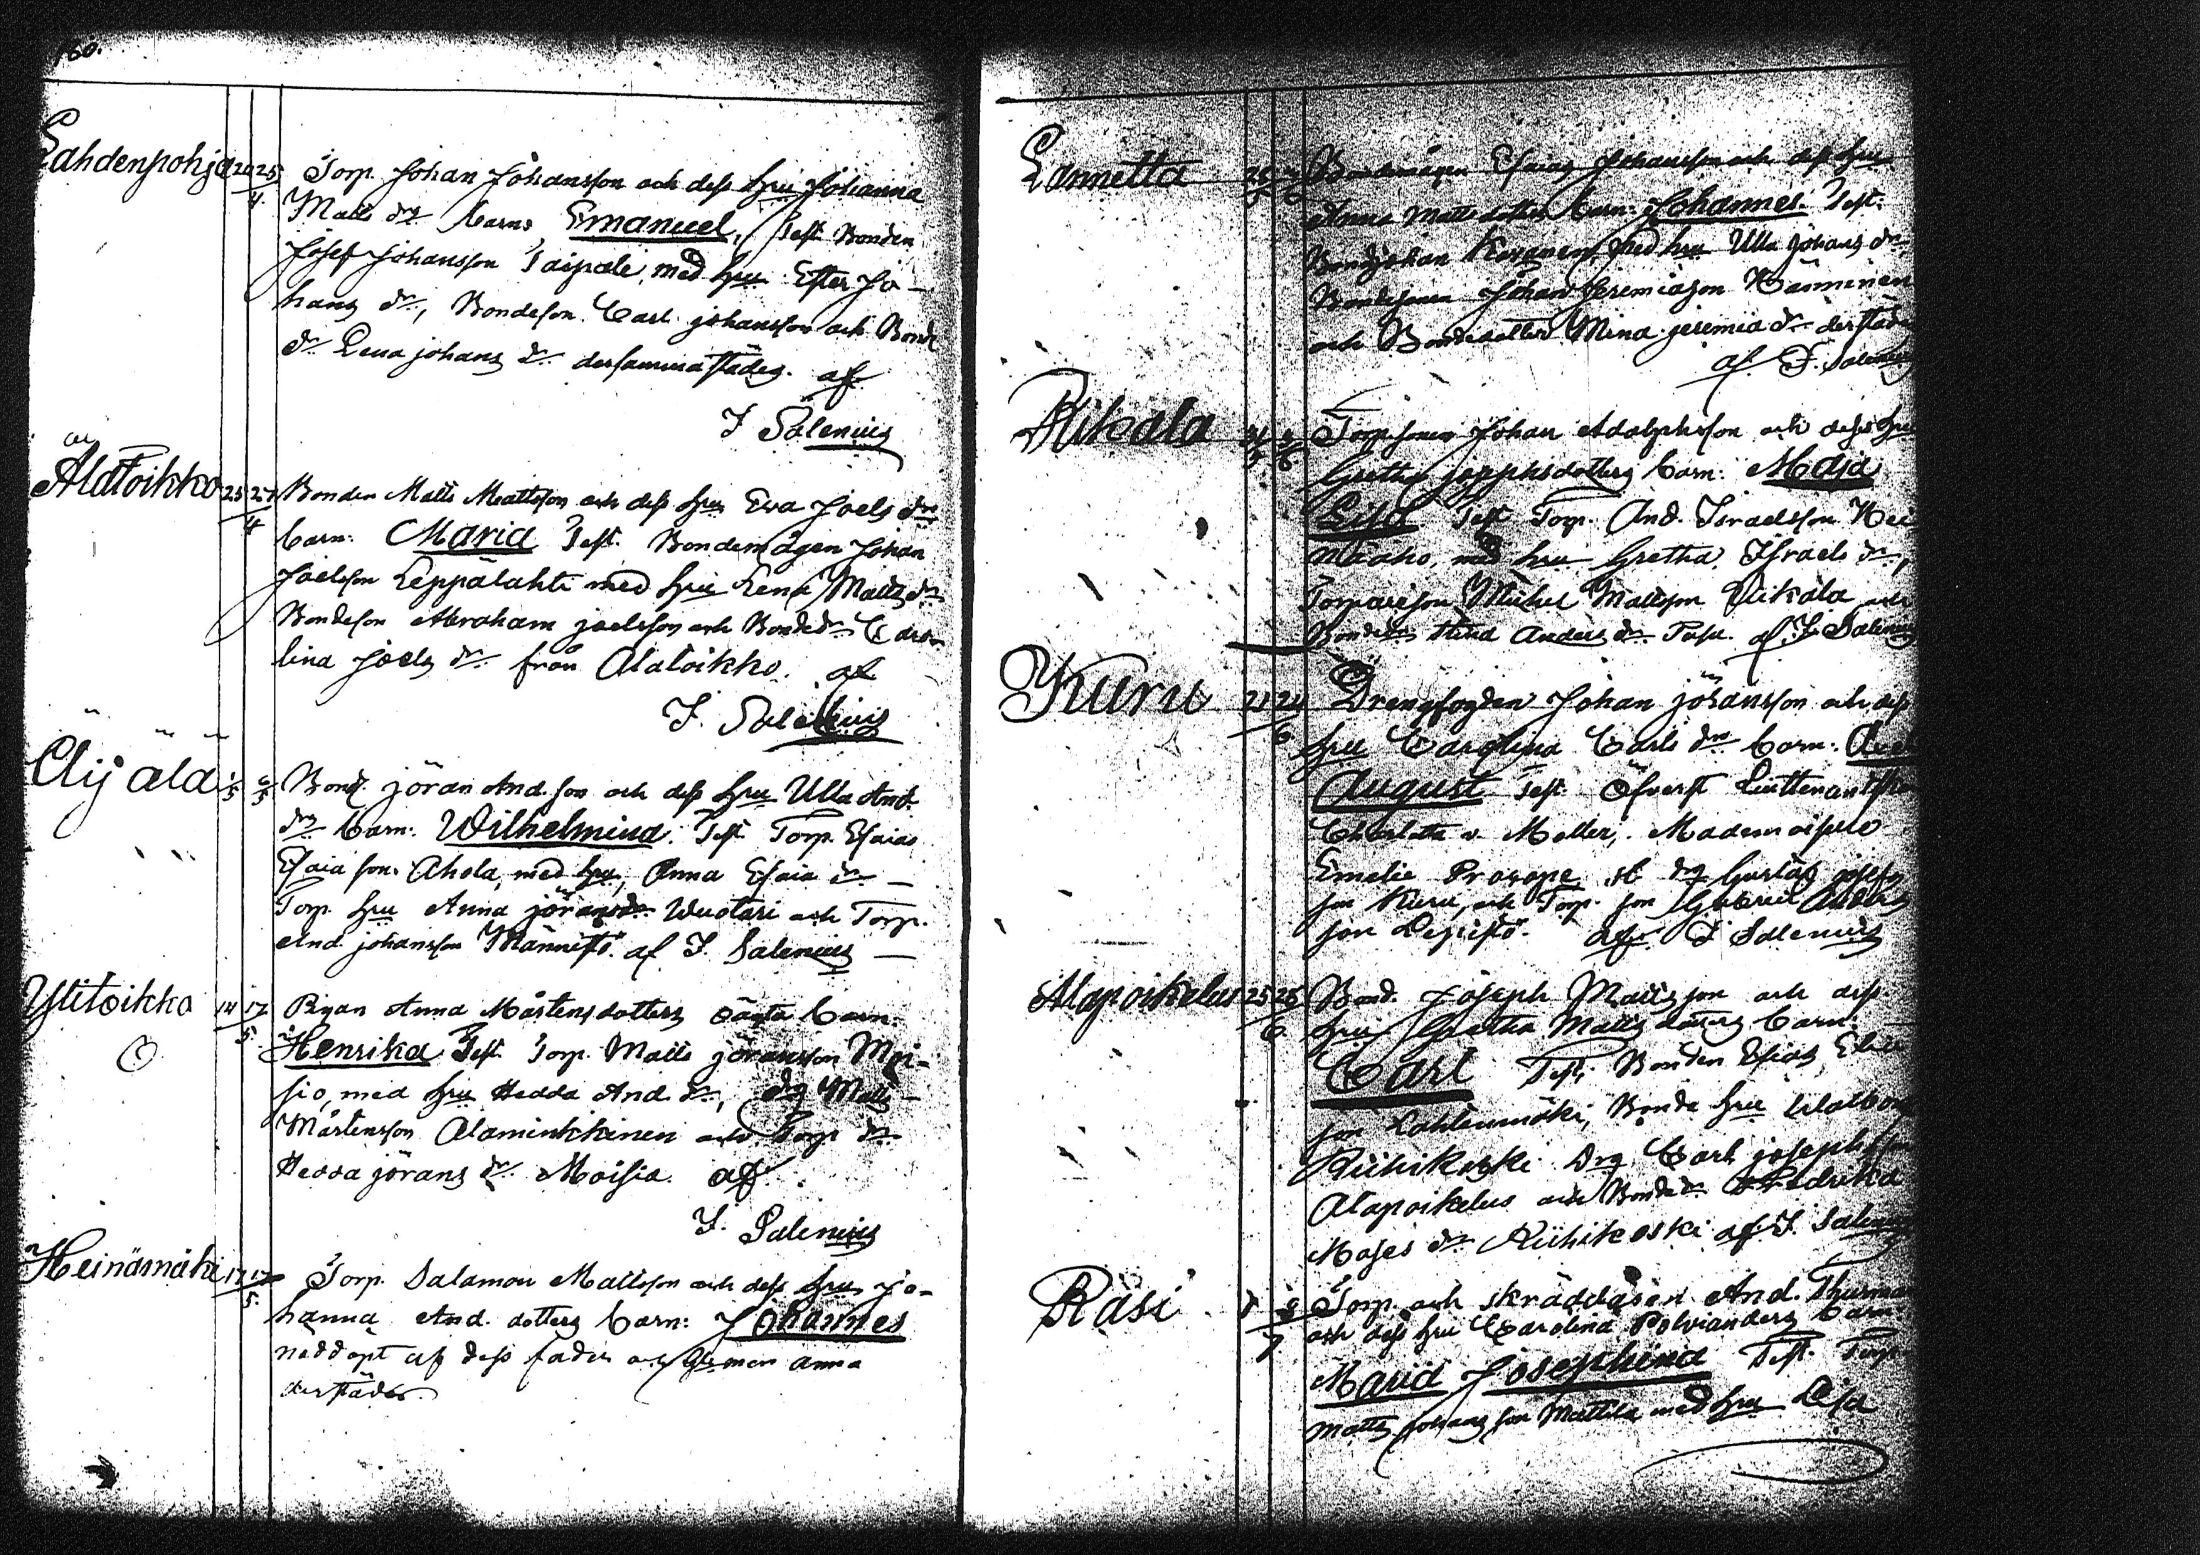 160.
Lahdenpohja 20 25/4 Torp. Johan Johansson och dess hru Johanna
Matts dr barn: Emanuel, Test. Bonden
Josef Johansson Taipale, med hru Ester Jo-
hans dr, Bondeson Carl johansson och Bonde
dr Lena johans dr dersammastädes. af
J Salenius
Alatoikko 25 27/4 Bonden Matts Mattsson och dess hru Eva Joels drs
barn: Maria Test. Bondemågen Johan
Joelsson Leppälahti med hru Lena Matts dr
Bondeson Abraham joelsson och Bonde dr Caro-
lina Joels dr från Alatoikko. af
J. Salenius
Äijälä 1/5 6/5 Bond. jöran And.son och dess hru Ulla And.
drs barn: Wilhelmina. Test. Torp. Esaias
Esaiason Ahola, med hru, Anna Esaia dr
Torp. hru Anna jörans dr Wuotari och Torp.
And johansson Männistö. af J. Salenius
Ylitoikko 14 17/5 Pigan Anna Mårtensdotters oägta barn:
Henrika Test. Torp. Matts jöransson Moi-
sio, med hru Hedda And. dr, drg Matts
Mårtensson Alaminkkinen och Torp dr
Hedda jörans dr Moisio. af
J. Salenius
Heinäsmäki 17 17/5 Torp. Salamon Mattsson och dess hru Jo-
hanna And. dotters barn: Johannes
nöddöpt af dess fader Anna
derstädes.
Lannetta Bondemågen Esaias Johansson och dess hru
Anna Mattsdotters barn: Johannes. Test.
Johan med hru Ulla Johans dr
Bondesonen Johan Jeremiason Känninen
och Bondedotter Mina jeremia dr derstädes
af J. Salenius
Rikala Torp.sonen Johan Adolphsson och dess hru
Gretha josephsdotters barn: Maja
Lisa Test Torp. And. Israelsson
med hru Gretha Israels dr,
Torpareson Michel Mattsson Rikala och
Bonde dr Anders dr af J. Salenius
Kuru 21 24/6 Drengfogden Johan johansson och dess
hru Carolina Carls drs barn:
August Test Öfverst Lieuttenantskan
Charlotta v. Moller, Mademoiselle
Emelie Procope, st drg Gustaf josefs
son Kuru, och Torp. son Gabriel Anders
son Lepistö. af J Salenius
Alapoikelus 25 26/6 Bond. Joseph Mattsson och dess
hru Gretha Mattsdotters barn:
Carl Test. Bonden Esias
son Lahtenmäki, Bonde hru
Riihikoski Drg Carl josephsson
Alapoikelus och Bonde dr Fredrika
Moses dr Riihikoski af J. Salenius
Räsi 8/7 Torp. och skräddaren And. Thurman
och dess hru Carolina Polvianders barn
Maria Josephina Test. Torp.
Matts johansson Mattila med hru Lisa